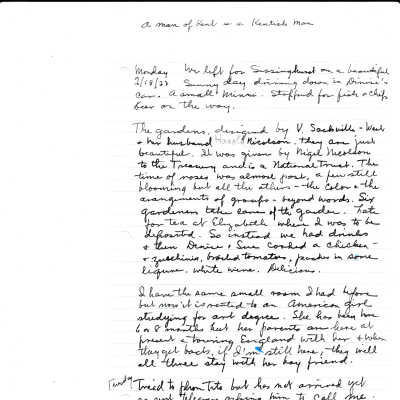 A man of Kent or a Kentish man
Monday We left for Sissinghurst on a beautiful
Sunny day driving down in Dennie's
car. A small Minni. Stopped for fish + chips
beer on the way.
The gardens, designed by V. Sackville-West
+ her husband Harold Nicolson. They are just
beautiful. It was given by Nigel Nicolson
to the Treasury and is a National Trust. The
time of roses was almost past, a few still
blooming but all the others - the color + the
arrangements of groups - beyond words. Six
gardeners take care of the garden. Late
for tea at Elizabeth where I was to be
deposited. So instead we had drinks
+ then Denise + Sue cooked a chicken -
+ zucchinis, broiled tomatoes, peaches in some
liqueur, white wine. Delicious.
I have the same small room I had before
but now it is rented to an American girl
studying for art degree. She has been here
6 or 8 months but her parents are here at
present + touring England with her + when
they get back, if I'm still here, they will
all three stay with her boy friend.
Tuesday Tried to phone Tito but has not arrived yet
asking him to call me.